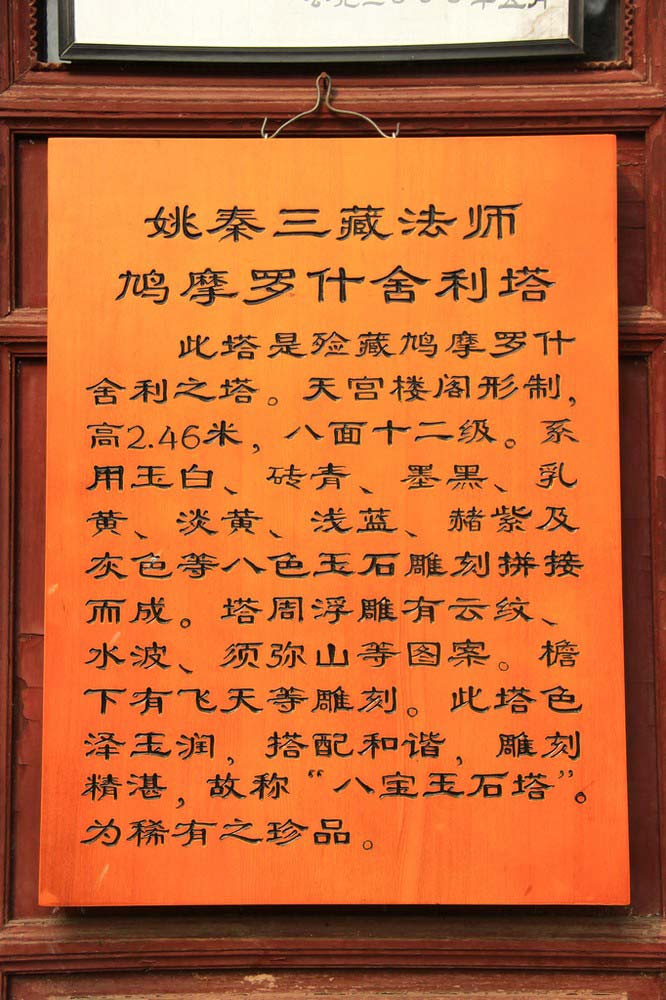 姚秦三藏法师
鸠摩罗什舍利塔
此塔是殓藏鸠摩罗什
舍利之塔。天宫楼阁形制,
高2.46米,八面十二级。系
用玉白、砖青、墨黑、乳
黄、淡黄、浅蓝、赭紫及
灰色等八色玉石雕刻拼接
而成。塔周浮雕有云纹、
水波、须弥山等图案。檐
下有飞天等雕刻。此塔色
泽玉润,搭配和谐,雕刻
精湛,故称“八宝玉石塔”。
为稀有之珍品。